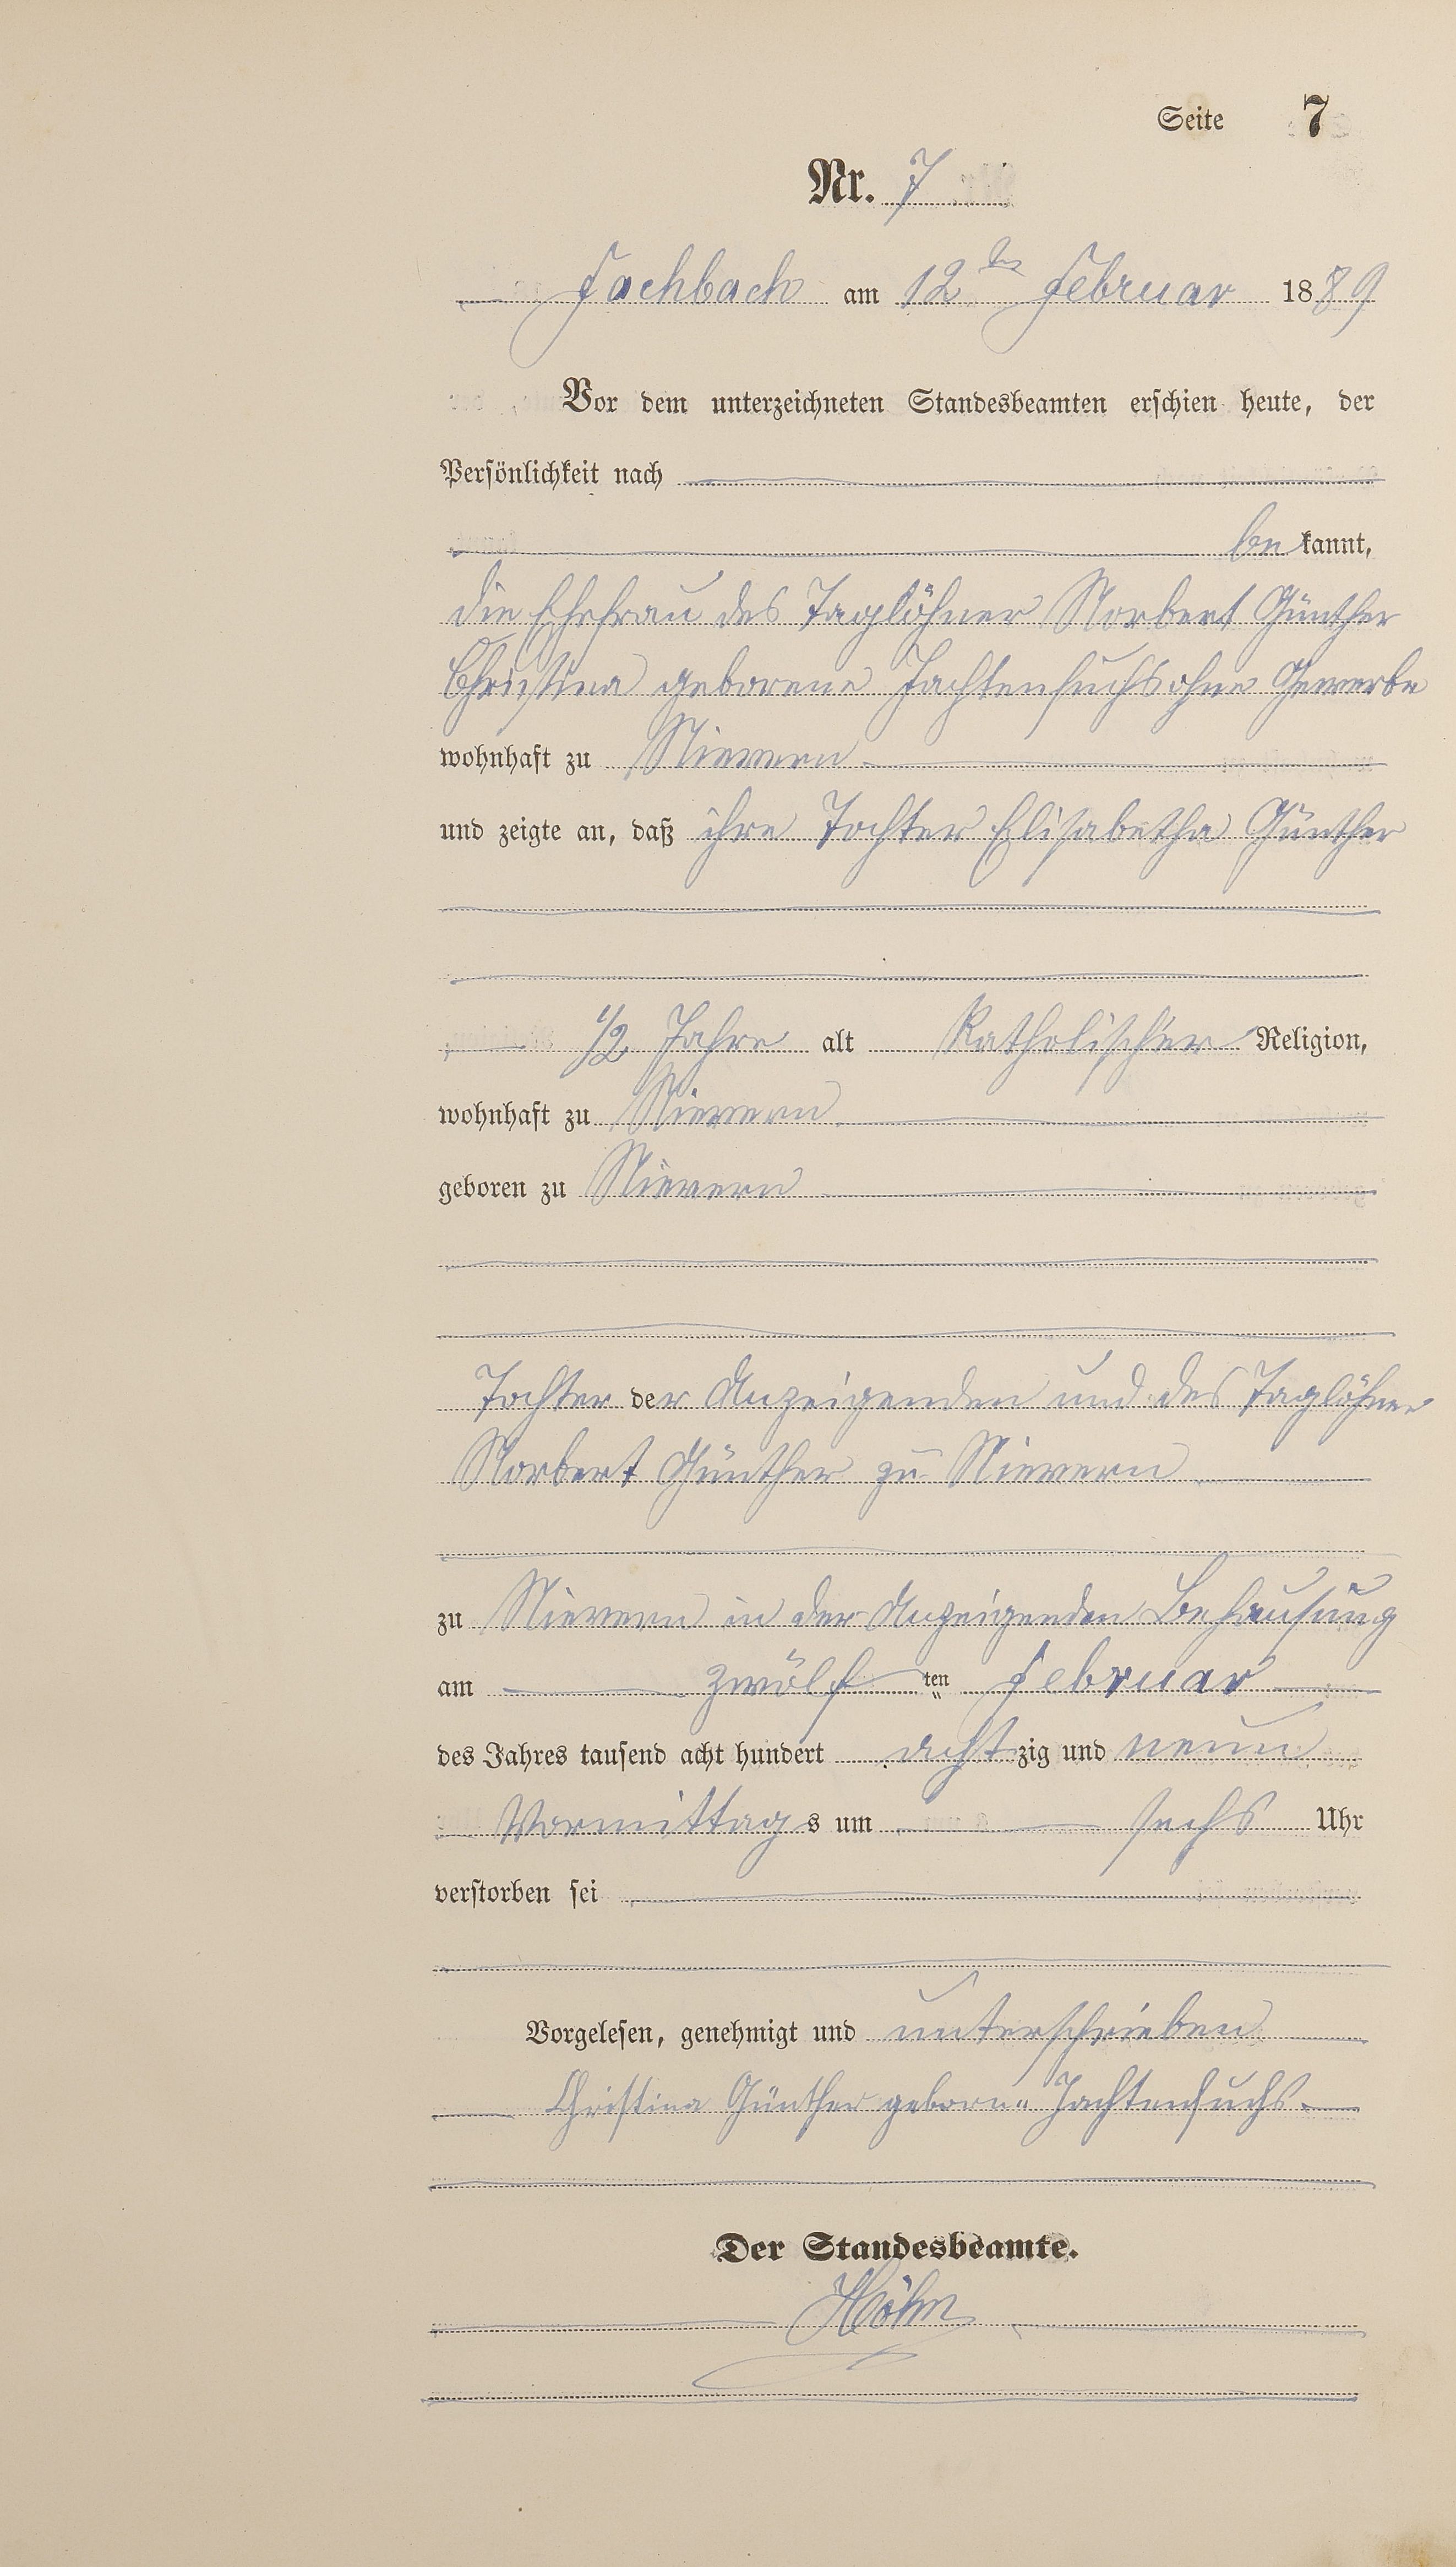 Seite 7
Nr. 7
Fachbach am 12ten Februar 1889
Vor dem unterzeichneten Standesbeamten erschien heute, der
Persönlichkeit nach
be kannt,
die Ehefrau des Taglöhner Norbert Günther
Christina geborene Jachtenfuchs ohne Gewerbe
wohnhaft zu Nievern
und zeigte an, daß ihre Tochter Elisabetha Günther
1/2 Jahre alt Katholischer Religion,
wohnhaft zu Nievern
geboren zu Nievern
Tochter der Anzeigenden und des Taglöhner
Norbert Günther zu Nievern
zu Nievern in der Anzeigenden Behausung
am zwölf ten Februar
des Jahres tausend acht hundert acht zig und neun
Vormittag s um sechs Uhr
verstorben sei
Vorgelesen, genehmigt und unterschrieben
Christina Günther geborn" Jachtenfuchs.
Der Standesbeamte.